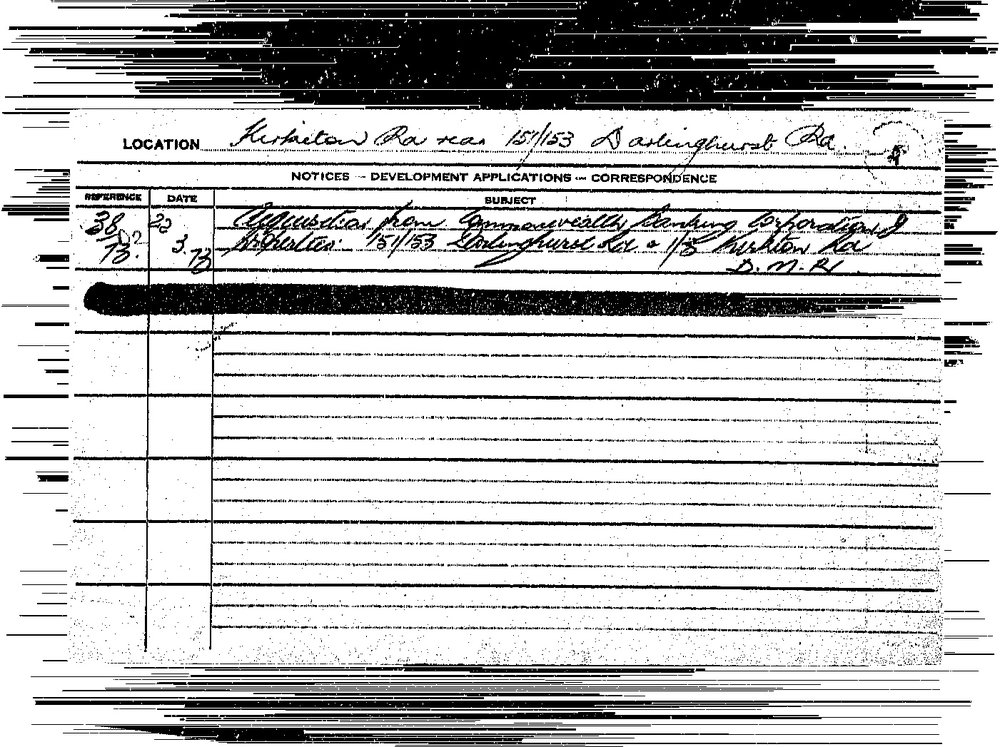 LOCATION Kirketon Rd rear 151/153 Darlinghurst Rd.
NOTICES — DEVELOPMENT APPLICATIONS — CORRESPONDENCE
REFERENCE DATE SUBJECT
38 22 Acquisition from Commonwealth Banking Corporation of
3 properties. 151/153 Darlinghurst Rd & 1/3 Kirketon Rd
73. 73 D.M.R.